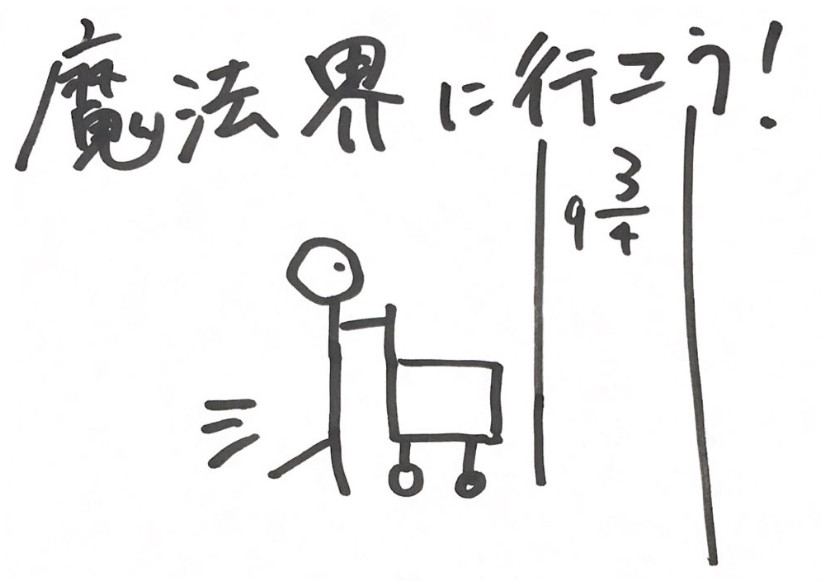 魔法界に行こう!
9 3/4